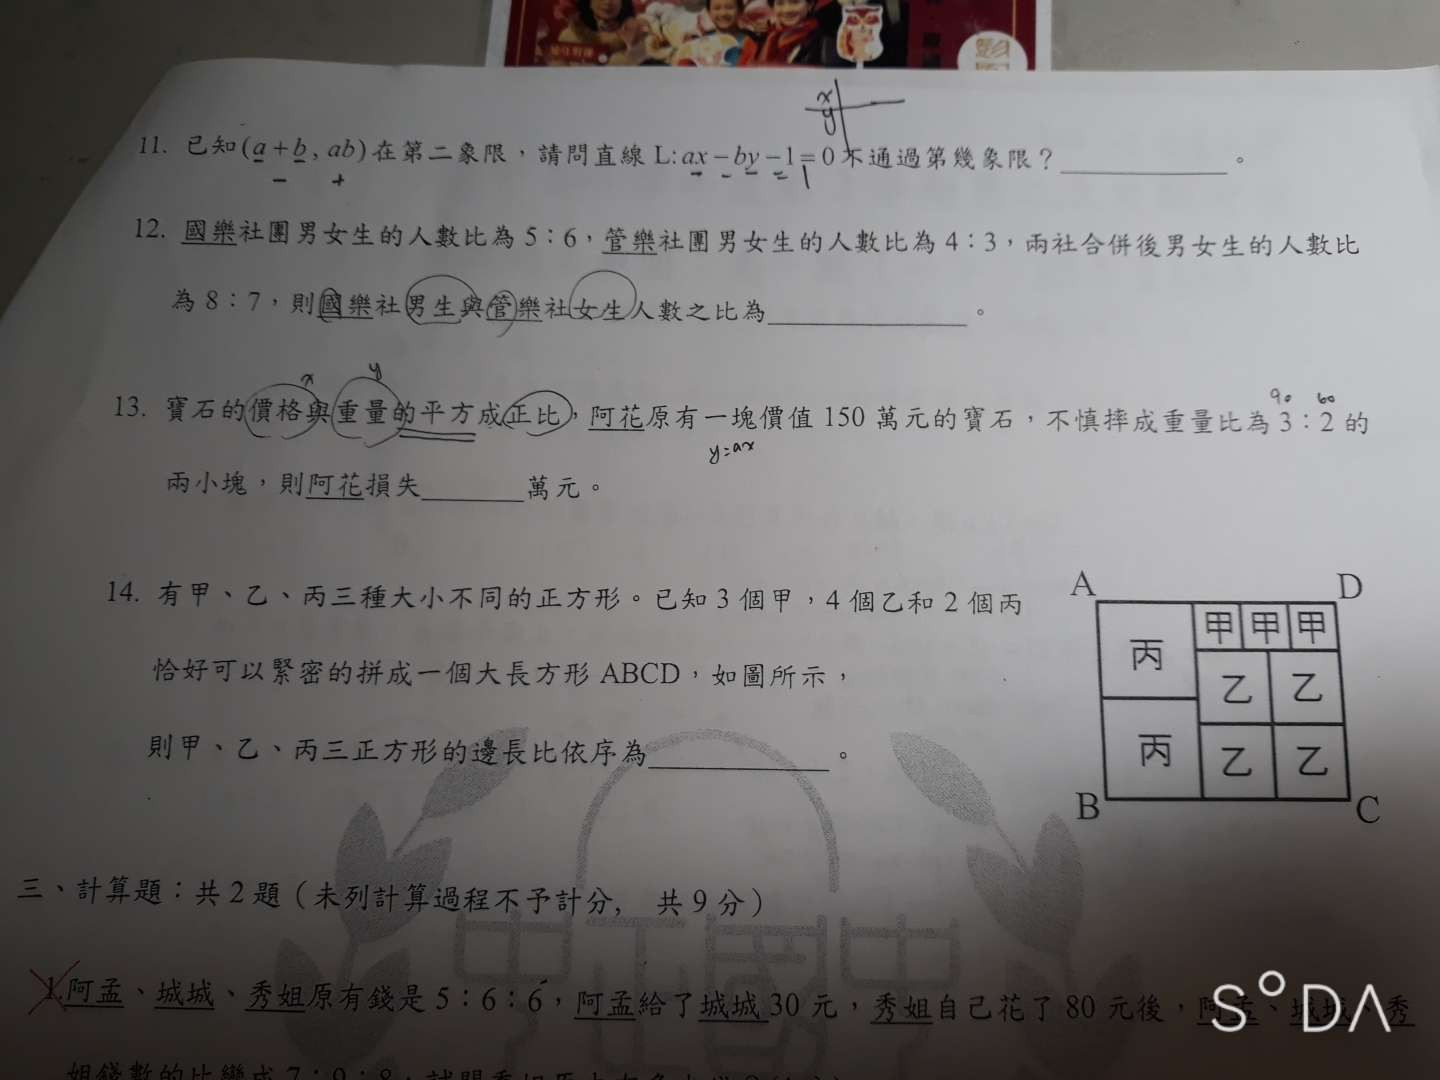 x
y
11. 已知(a+b, ab)在第二象限，請問直線 L: ax－by－1=0 不通過第幾象限？__________。
－ ＋
12. 國樂社團男女生的人數比為 5：6，管樂社團男女生的人數比為 4：3，兩社合併後男女生的人數比
為 8：7，則國樂社男生與管樂社女生人數之比為__________。
x y
90 60
13. 寶石的價格與重量的平方成正比，阿花原有一塊價值 150 萬元的寶石，不慎摔成重量比為 3：2 的
y=ax
兩小塊，則阿花損失______萬元。
14. 有甲、乙、丙三種大小不同的正方形。已知 3 個甲，4 個乙和 2 個丙
恰好可以緊密的拼成一個大長方形 ABCD，如圖所示，
則甲、乙、丙三正方形的邊長比依序為__________。
A D
甲 甲 甲
丙
乙 乙
丙 乙 乙
B C
三、計算題：共 2 題（未列計算過程不予計分， 共 9 分）
1.阿孟、城城、秀姐原有錢是 5：6：6，阿孟給了城城 30 元，秀姐自己花了 80 元後，阿孟、城城、秀
SODA